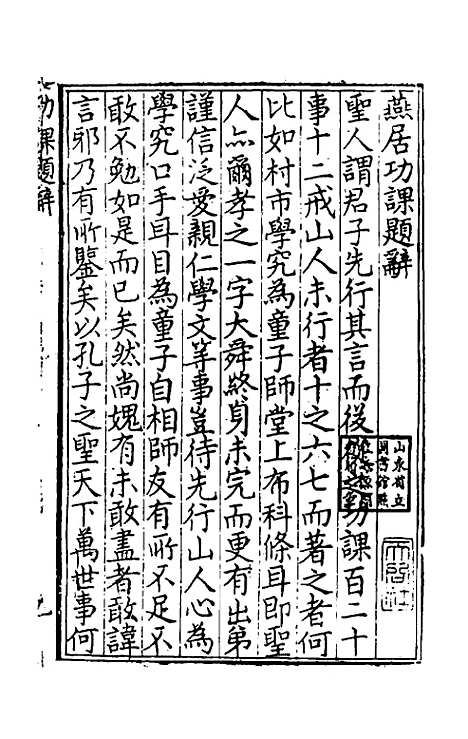 燕居功課題辭
聖人謂君子先行其言而後從之功課百二十
事十二戒山人未行者十之六七而著之者何
比如村市學究為童子師堂上布科條耳即聖
人亦爾孝之一字大舜終身未完而更有出第
謹信泛愛親仁學文等事豈待先行山人心為
學究口手耳目為童子自相師友有所不足不
敢不勉如是而已矣然尚媿有未敢盡者敢諱
言邪乃有所鑒矣以孔子之聖天下萬世事何
功課題辭
山東省立